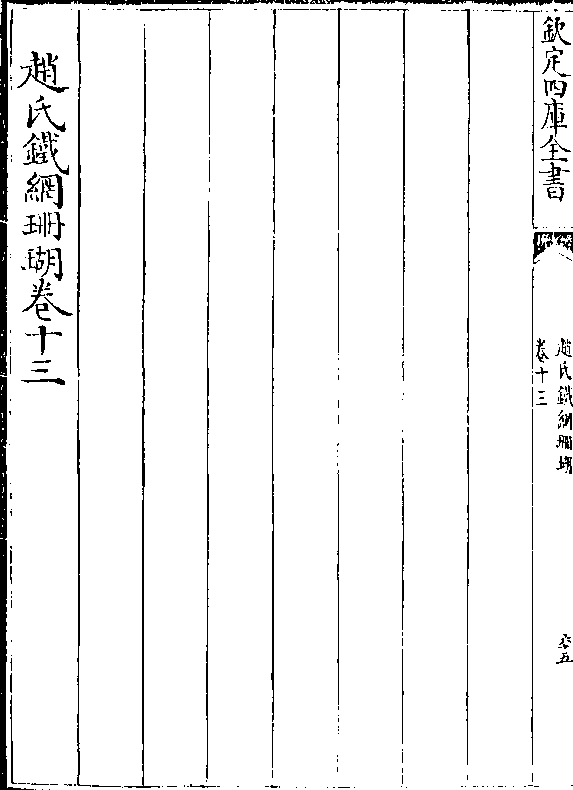 欽定四庫全書
趙氏鐵網珊瑚
卷十三
六五
趙氏鐵網珊瑚卷十三